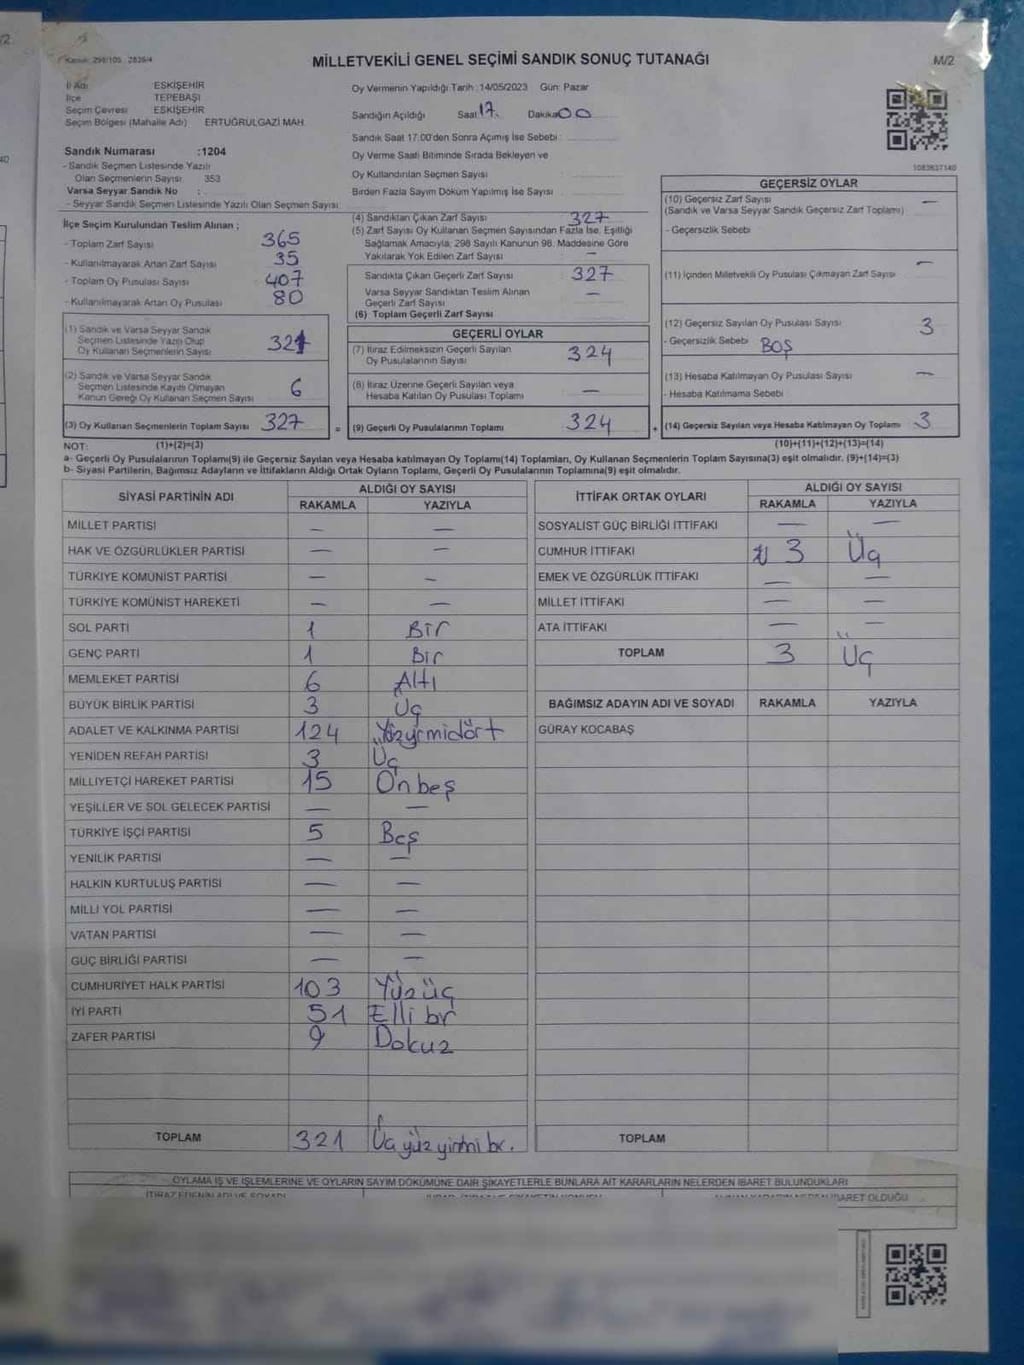 Kanun: 298/105 2839/4
MİLLETVEKİLİ GENEL SEÇİMİ SANDIK SONUÇ TUTANAĞI
M/2
İl Adı ESKİŞEHİR
İlçe TEPEBAŞI
Seçim Çevresi ESKİŞEHİR
Seçim Bölgesi (Mahalle Adı) ERTUĞRULGAZİ MAH.
Oy Vermenin Yapıldığı Tarih :14/05/2023 Gün: Pazar
Sandığın Açıldığı Saat 17. Dakika 00
Sandık Saat 17:00'den Sonra Açılmış İse Sebebi :
Oy Verme Saati Bitiminde Sırada Bekleyen ve
Oy Kullandırılan Seçmen Sayısı :
Birden Fazla Sayım Döküm Yapılmış İse Sayısı :
1083637140
Sandık Numarası :1204
- Sandık Seçmen Listesinde Yazılı
Olan Seçmenlerin Sayısı 353
Varsa Seyyar Sandık No :
- Seyyar Sandık Seçmen Listesinde Yazılı Olan Seçmen Sayısı:
İlçe Seçim Kurulundan Teslim Alınan ;
- Toplam Zarf Sayısı 365
- Kullanılmayarak Artan Zarf Sayısı 35
- Toplam Oy Pusulası Sayısı 407
- Kullanılmayarak Artan Oy Pusulası 80
(1) Sandık ve Varsa Seyyar Sandık
Seçmen Listesinde Yazılı Olup
Oy Kullanan Seçmenlerin Sayısı 321
(2) Sandık ve Varsa Seyyar Sandık
Seçmen Listesinde Kayıtlı Olmayan
Kanun Gereği Oy Kullanan Seçmen Sayısı 6
(3) Oy Kullanan Seçmenlerin Toplam Sayısı 327
(4) Sandıktan Çıkan Zarf Sayısı 327
(5) Zarf Sayısı Oy Kullanan Seçmen Sayısından Fazla İse, Eşitliği
Sağlamak Amacıyla, 298 Sayılı Kanunun 98. Maddesine Göre
Yakılarak Yok Edilen Zarf Sayısı —
Sandıkta Çıkan Geçerli Zarf Sayısı 327
Varsa Seyyar Sandıktan Teslim Alınan
Geçerli Zarf Sayısı —
(6) Toplam Geçerli Zarf Sayısı
GEÇERLİ OYLAR
(7) İtiraz Edilmeksizin Geçerli Sayılan
Oy Pusulalarının Sayısı 324
(8) İtiraz Üzerine Geçerli Sayılan veya
Hesaba Katılan Oy Pusulası Toplamı —
= (9) Geçerli Oy Pusulalarının Toplamı 324
GEÇERSİZ OYLAR
(10) Geçersiz Zarf Sayısı —
(Sandık ve Varsa Seyyar Sandık Geçersiz Zarf Toplamı)
- Geçersizlik Sebebi
(11) İçinden Milletvekili Oy Pusulası Çıkmayan Zarf Sayısı —
(12) Geçersiz Sayılan Oy Pusulası Sayısı 3
- Geçersizlik Sebebi BOŞ
(13) Hesaba Katılmayan Oy Pusulası Sayısı —
- Hesaba Katılmama Sebebi
+ (14) Geçersiz Sayılan veya Hesaba Katılmayan Oy Toplamı 3
NOT: (1)+(2)=(3) (10)+(11)+(12)+(13)=(14)
a- Geçerli Oy Pusulalarının Toplamı(9) ile Geçersiz Sayılan veya Hesaba katılmayan Oy Toplamı(14) Toplamları, Oy Kullanan Seçmenlerin Toplam Sayısına(3) eşit olmalıdır. (9)+(14)=(3)
b- Siyasi Partilerin, Bağımsız Adayların ve İttifakların Aldığı Ortak Oyların Toplamı, Geçerli Oy Pusulalarının Toplamına(9) eşit olmalıdır.
SİYASİ PARTİNİN ADI ALDIĞI OY SAYISI
RAKAMLA YAZIYLA
MİLLET PARTİSİ — —
HAK VE ÖZGÜRLÜKLER PARTİSİ — —
TÜRKİYE KOMÜNİST PARTİSİ — —
TÜRKİYE KOMÜNİST HAREKETİ — —
SOL PARTİ 1 Bir
GENÇ PARTİ 1 Bir
MEMLEKET PARTİSİ 6 Altı
BÜYÜK BİRLİK PARTİSİ 3 Üç
ADALET VE KALKINMA PARTİSİ 124 Yüzyirmidört
YENİDEN REFAH PARTİSİ 3 Üç
MİLLİYETÇİ HAREKET PARTİSİ 15 Onbeş
YEŞİLLER VE SOL GELECEK PARTİSİ — —
TÜRKİYE İŞÇİ PARTİSİ 5 Beş
YENİLİK PARTİSİ — —
HALKIN KURTULUŞ PARTİSİ — —
MİLLİ YOL PARTİSİ — —
VATAN PARTİSİ — —
GÜÇ BİRLİĞİ PARTİSİ — —
CUMHURİYET HALK PARTİSİ 103 Yüzüç
İYİ PARTİ 51 Elli bir
ZAFER PARTİSİ 9 Dokuz
TOPLAM 321 Üçyüz yirmi bir.
İTTİFAK ORTAK OYLARI ALDIĞI OY SAYISI
RAKAMLA YAZIYLA
SOSYALİST GÜÇ BİRLİĞİ İTTİFAKI — —
CUMHUR İTTİFAKI 3 Üç
EMEK VE ÖZGÜRLÜK İTTİFAKI — —
MİLLET İTTİFAKI — —
ATA İTTİFAKI — —
TOPLAM 3 Üç
BAĞIMSIZ ADAYIN ADI VE SOYADI RAKAMLA YAZIYLA
GÜRAY KOCABAŞ
TOPLAM
OYLAMA İŞ VE İŞLEMLERİNE VE OYLARIN SAYIM DÖKÜMÜNE DAİR ŞİKAYETLERLE BUNLARA AİT KARARLARIN NELERDEN İBARET BULUNDUKLARI